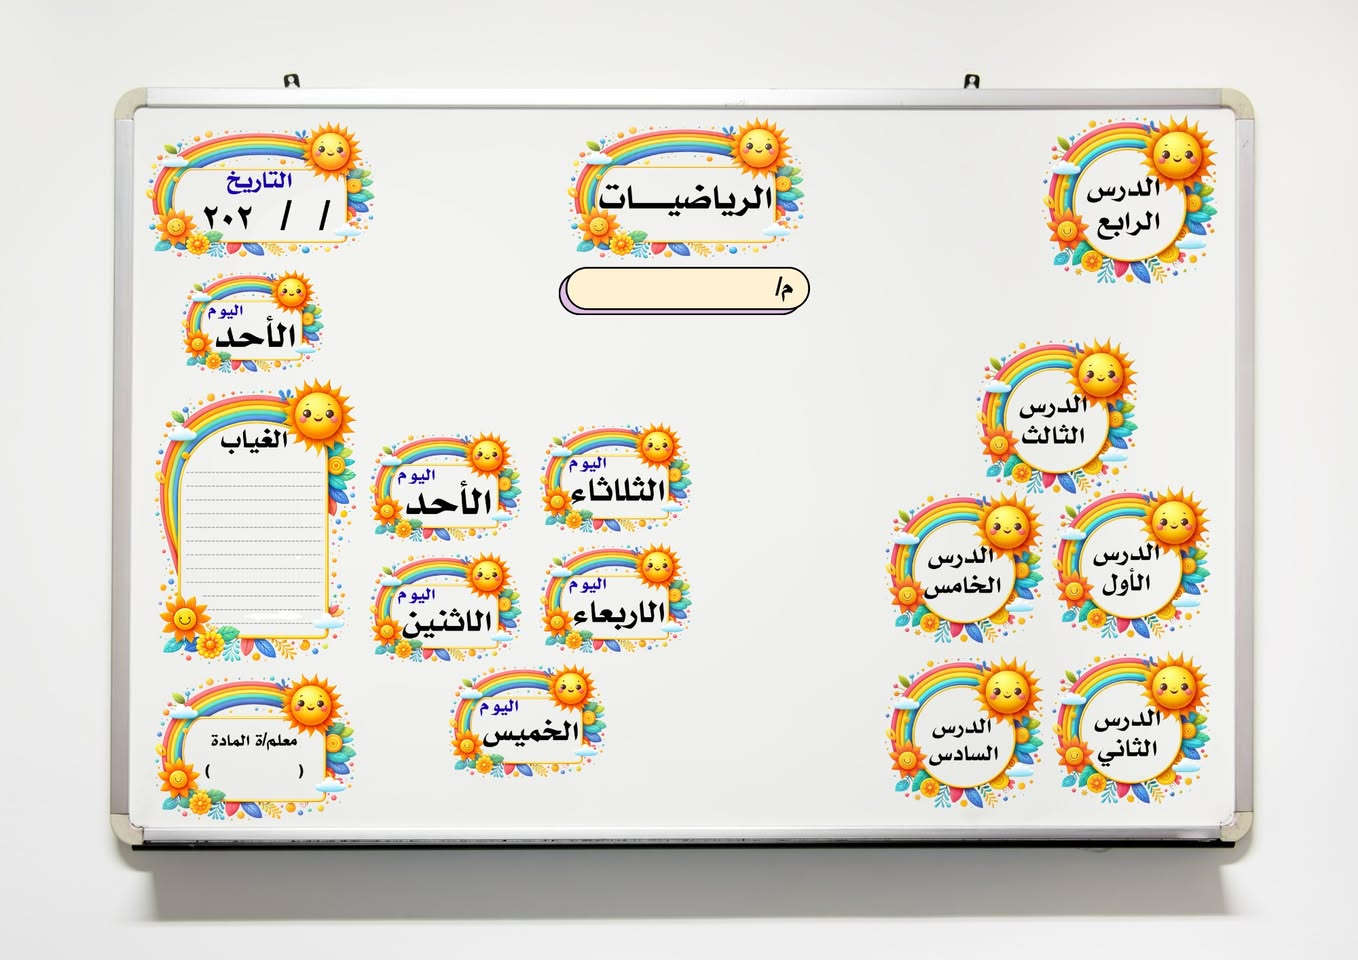 الدرس
الرابع
الرياضيـــات
م/
التاريخ
/ / ٢٠٢
اليوم
الأحد
الغياب
معلم/ة المادة
( )
اليوم
الثلاثاء
اليوم
الأحد
اليوم
الاربعاء
اليوم
الاثنين
اليوم
الخميس
الدرس
الثالث
الدرس
الأول
الدرس
الخامس
الدرس
الثاني
الدرس
السادس